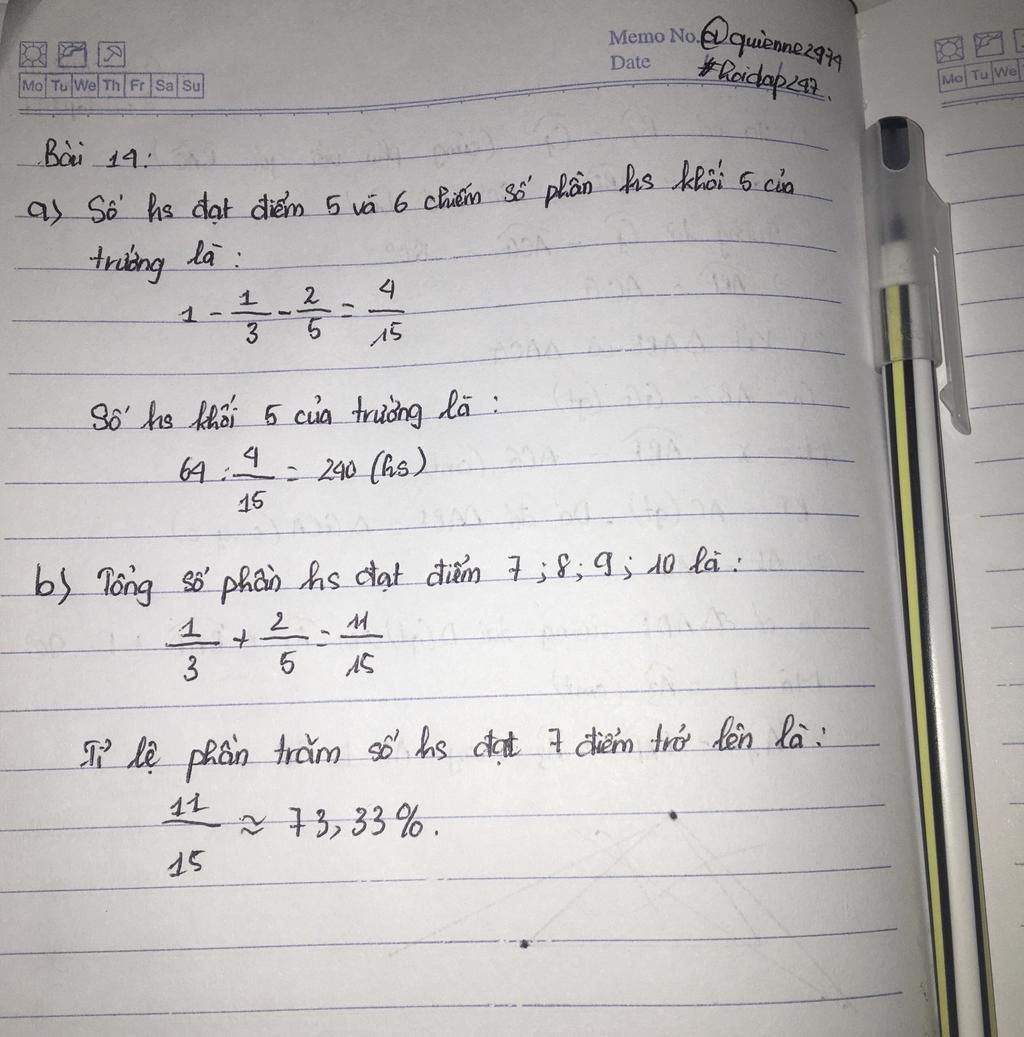 Memo No. @quienne2979
Date #hoidap247.
Mo Tu We Th Fr Sa Su
Mo Tu We
Bài 14:
a) Số hs đạt điểm 5 và 6 chiếm số phần hs khối 5 của
trường là :
1 - 1/3 - 2/5 = 4/15
Số hs khối 5 của trường là :
64 : 4/15 = 240 (hs)
b) Tổng số phần hs đạt điểm 7 ; 8 ; 9 ; 10 là :
1/3 + 2/5 = 11/15
Tỉ lệ phần trăm số hs đạt 7 điểm trở lên là :
11/15 ≈ 73,33%.